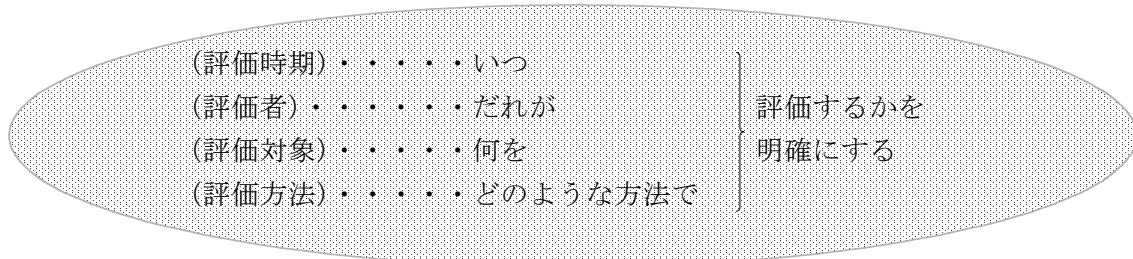 （評価時期）・・・・・いつ
（評価者）・・・・・・だれが
（評価対象）・・・・・何を
（評価方法）・・・・・どのような方法で
評価するかを
明確にする